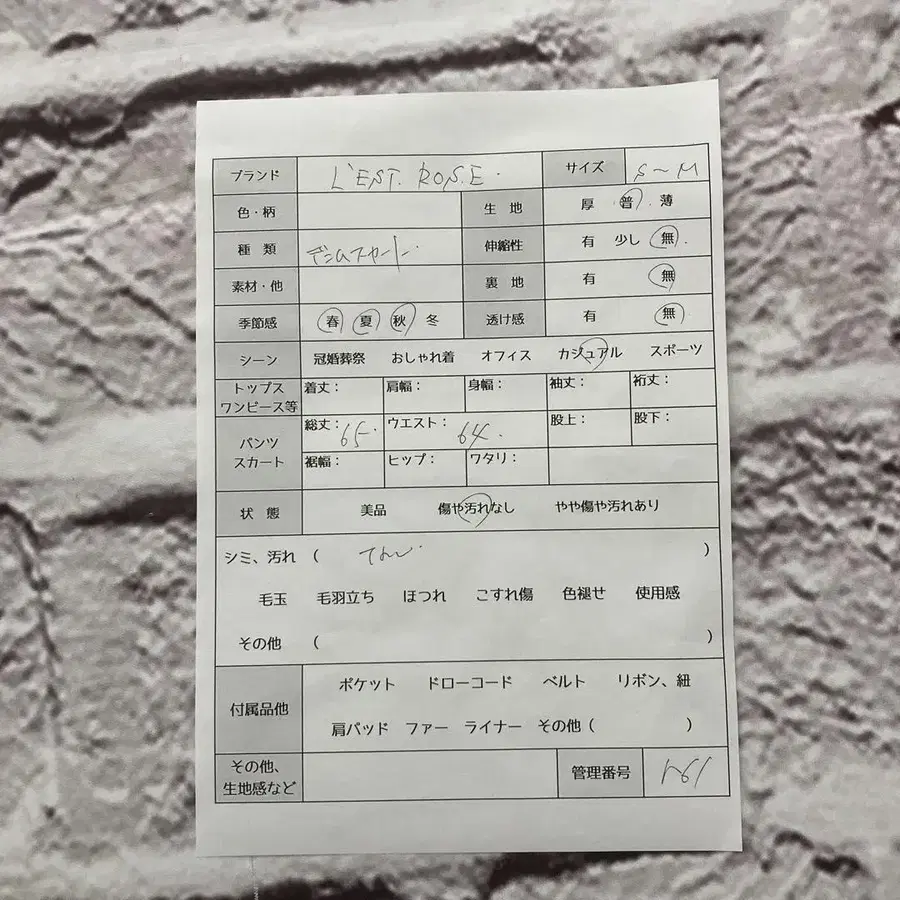 ブランド L'EST. ROSE. サイズ S〜M
色・柄 生地 厚 普 . 薄
種類 デニムスカート. 伸縮性 有 少し 無 .
素材・他 裏地 有 無
季節感 春 夏 秋 冬 透け感 有 無
シーン 冠婚葬祭 おしゃれ着 オフィス カジュアル スポーツ
トップス
ワンピース等 着丈： 肩幅： 身幅： 袖丈： 裄丈：
パンツ
スカート 総丈：65. ウエスト：64. 股上： 股下：
裾幅： ヒップ： ワタリ：
状態 美品 傷や汚れなし やや傷や汚れあり
シミ、汚れ （ ）
毛玉 毛羽立ち ほつれ こすれ傷 色褪せ 使用感
その他 （ ）
付属品他 ポケット ドローコード ベルト リボン、紐
肩パッド ファー ライナー その他（ ）
その他、
生地感など 管理番号